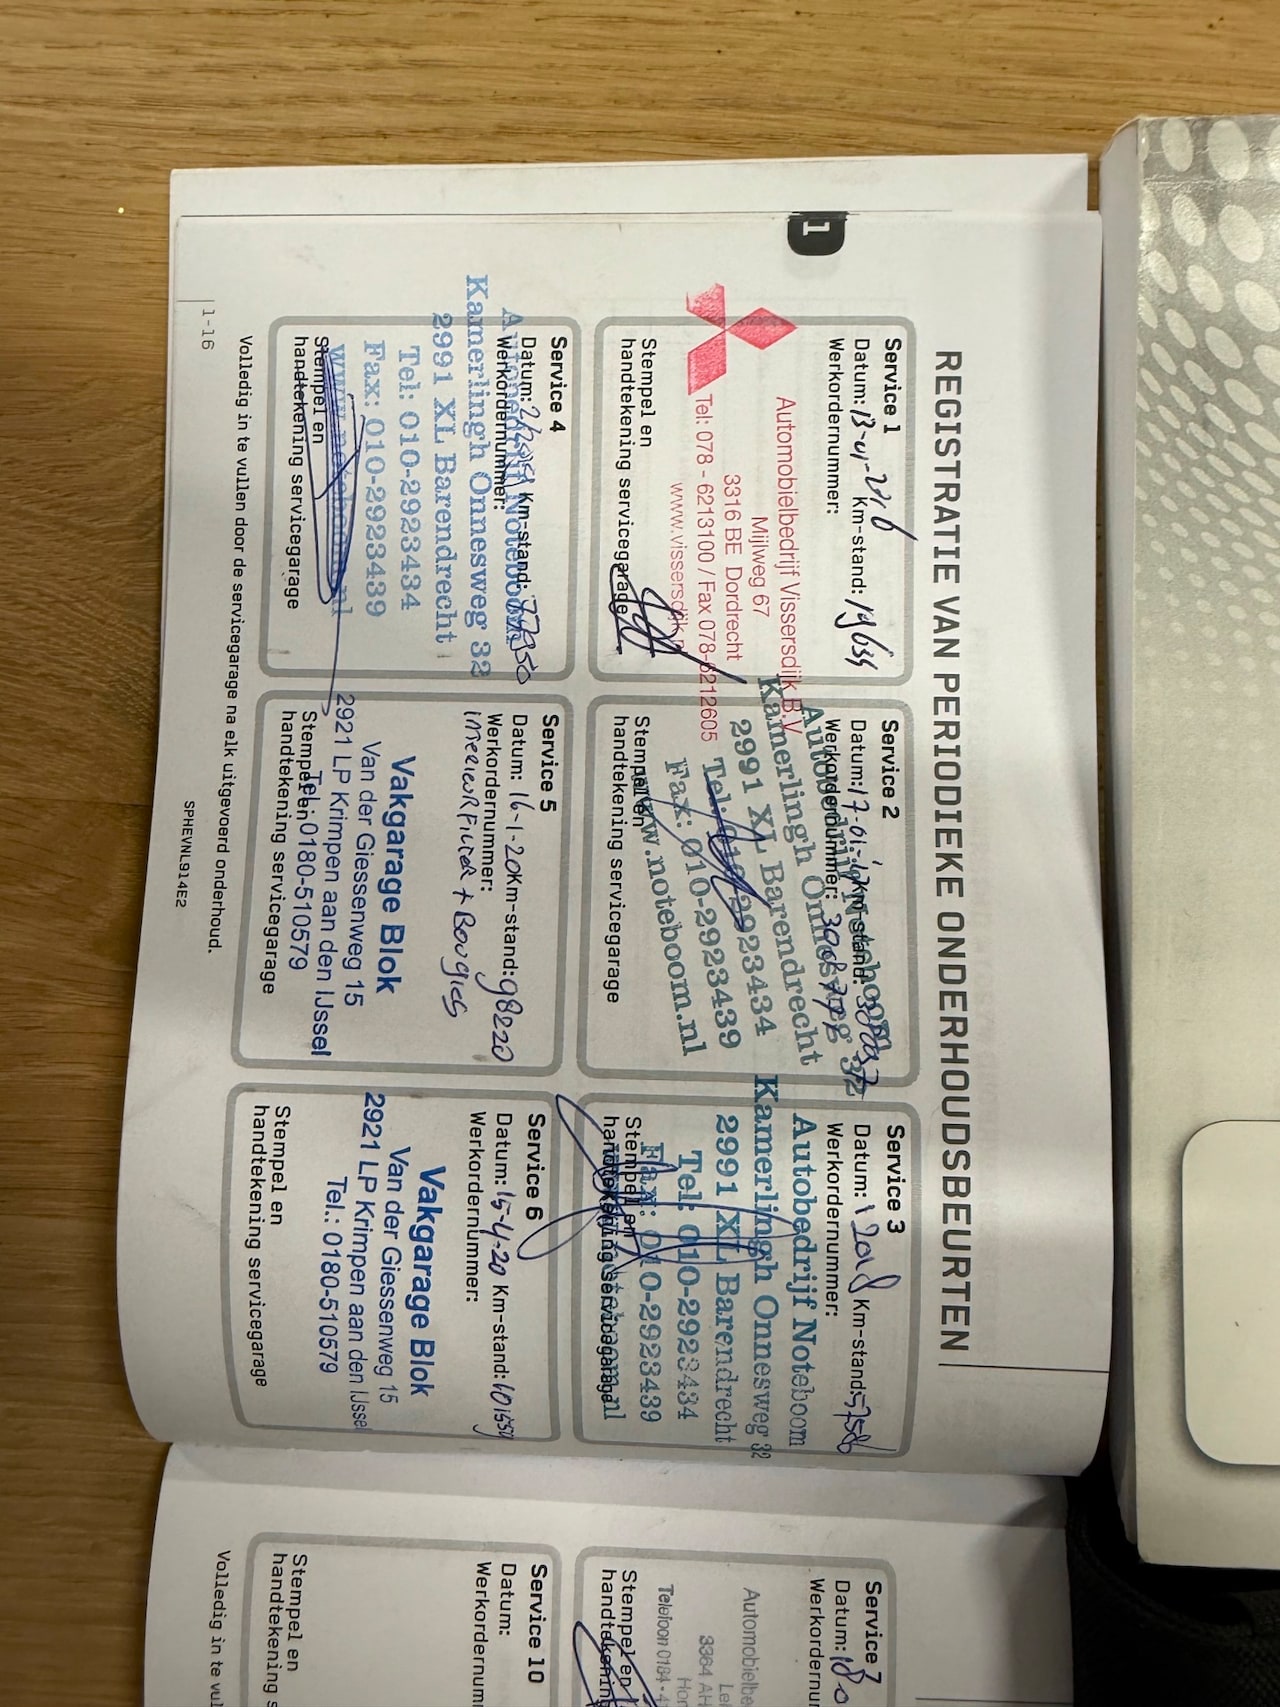 REGISTRATIE VAN PERIODIEKE ONDERHOUDSBEURTEN
1
Service 1
Datum: Km-stand: 19634
Werkordernummer:
Automobielbedrijf Vissersdijk B.V.
Mijlweg 67
3316 BE Dordrecht
Tel: 078 - 6213100 / Fax 078-6212605
www.vissersdijk.nl
Stempel en
handtekening servicegarage
Service 2
Datum: 17-01-17 Km-stand:
Werkordernummer:
Autobedrijf Noteboom
Kamerlingh Onnesweg 32
2991 XL Barendrecht
Tel: 010-2923434
Fax: 010-2923439
www.noteboom.nl
Stempel en
handtekening servicegarage
Service 3
Datum: 2018 Km-stand:
Werkordernummer:
Autobedrijf Noteboom
Kamerlingh Onnesweg 32
2991 XL Barendrecht
Tel: 010-2923434
Fax: 010-2923439
Stempel en
handtekening servicegarage
Service 4
Datum: Km-stand: 77350
Werkordernummer:
Autobedrijf Noteboom
Kamerlingh Onnesweg 32
2991 XL Barendrecht
Tel: 010-2923434
Fax: 010-2923439
www.noteboom.nl
Stempel en
handtekening servicegarage
Service 5
Datum: 16-1-20 Km-stand: 98220
Werkordernummer:
+ Bougies
Vakgarage Blok
Van der Giessenweg 15
2921 LP Krimpen aan den IJssel
Tel.: 0180-510579
Stempel en
handtekening servicegarage
Service 6
Datum: 15-4-20 Km-stand:
Werkordernummer:
Vakgarage Blok
Van der Giessenweg 15
2921 LP Krimpen aan den IJssel
Tel.: 0180-510579
Stempel en
handtekening servicegarage
Volledig in te vullen door de servicegarage na elk uitgevoerd onderhoud.
1-16
SPHEVNL914E2
Service 7
Datum:
Stempel en
Service 10
Datum:
Stempel en
handtekening
Volledig in te